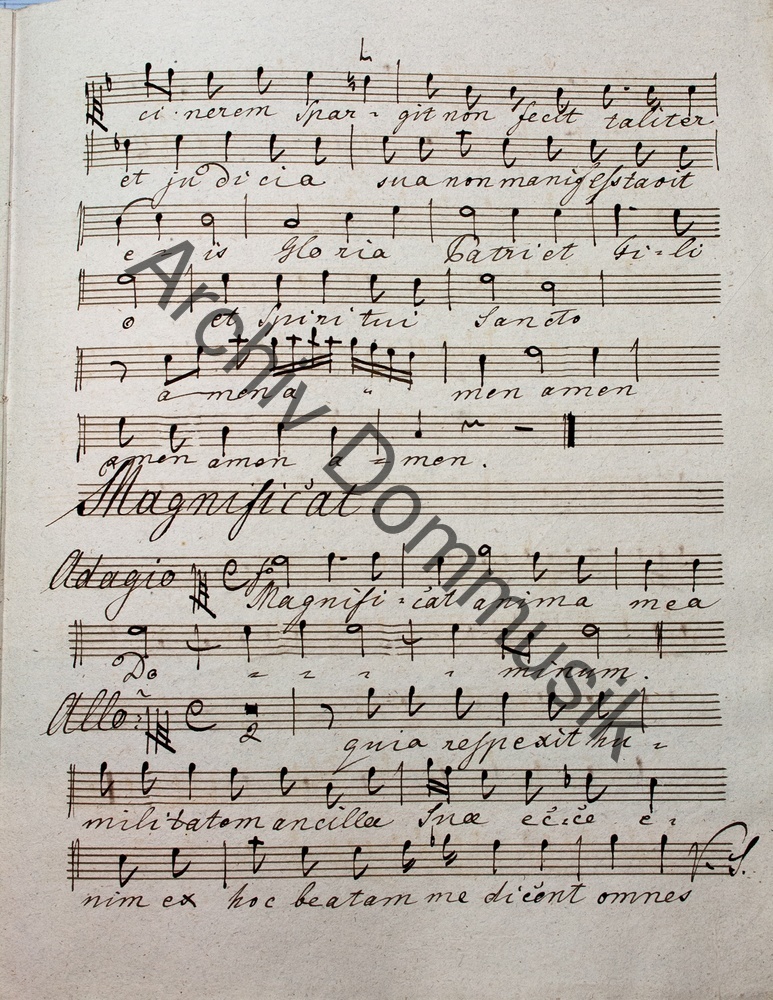 ci-nerem Spar-git non fecit taliter
et judicia sua non manifestavit
e-is Gloria Patri et Fi-li
o et Spiri tui Sancto
amen a " men amen
amen amen a-men.
Magnificat.
Adagio Magnifi-cat anima mea
Do - - - - minum.
Allo: 2 quia respexit hu-
militatem ancillæ Suæ ecce e-
nim ex hoc beatam me dicent omnes
V. S.
Archiv Dommusik